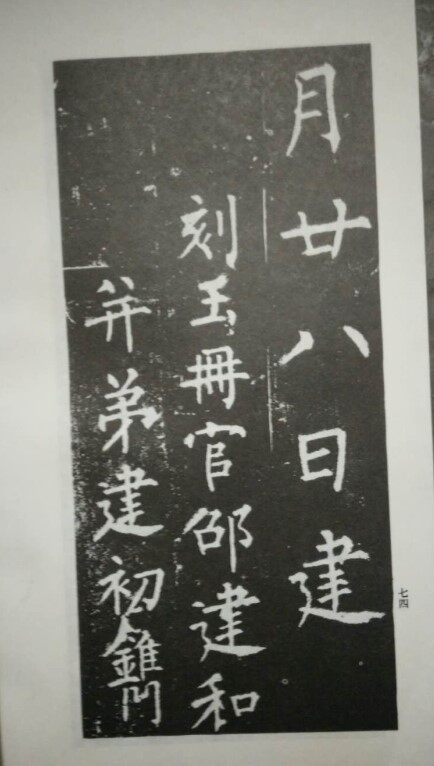 月廿八日建
刻玉冊官邵建和
并弟建初鐫
七四